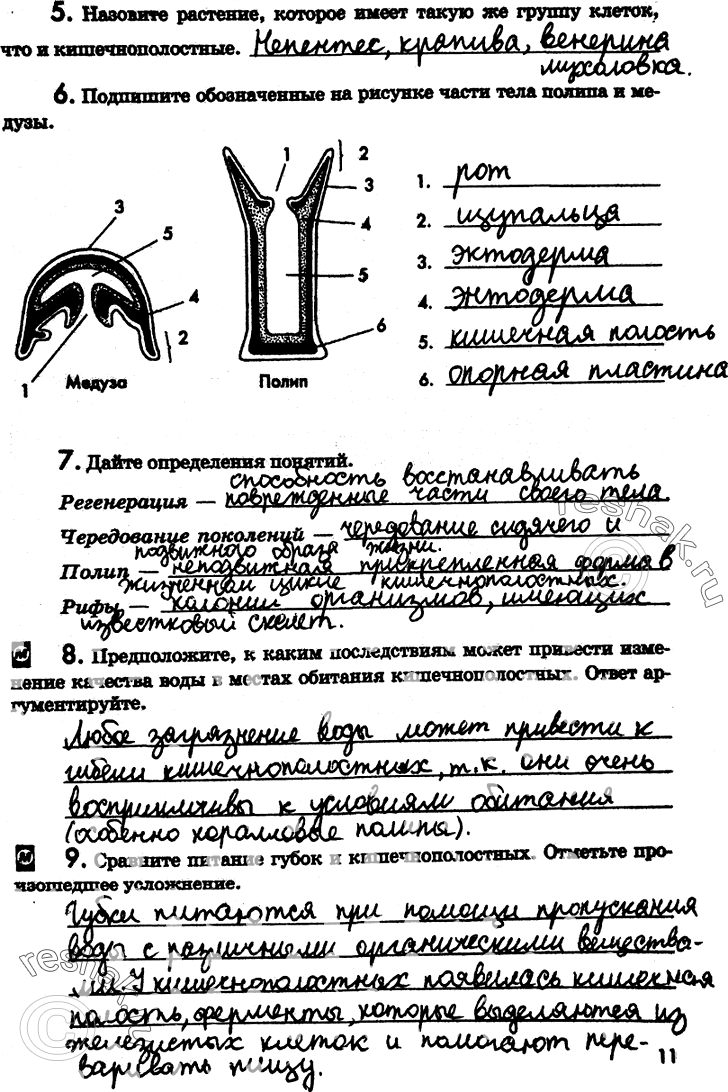 5. Назовите растение, которое имеет такую же группу клеток,
что и кишечнополостные. Непентес, крапива, венерина
мухоловка.
6. Подпишите обозначенные на рисунке части тела полипа и ме-
дузы.
1
2
3
4
5
6
Полип
3
5
4
2
1
Медуза
1. рот
2. щупальца
3. эктодерма
4. энтодерма
5. кишечная полость
6. опорная пластина
7. Дайте определения понятий.
способность восстанавливать
Регенерация — поврежденные части своего тела.
Чередование поколений — чередование сидячего и
подвижного образа жизни.
Полип — неподвижная прикрепленная форма в
жизненном цикле кишечнополостных.
Рифы — колонии организмов, имеющих
известковый скелет.
М 8. Предположите, к каким последствиям может привести изме-
нение качества воды в местах обитания кишечнополостных. Ответ ар-
гументируйте.
Любое загрязнение воды может привести к
гибели кишечнополостных, т.к. они очень
восприимчивы к условиям обитания
(особенно коралловые полипы).
М 9. Сравните питание губок и кишечнополостных. Отметьте про-
изошедшее усложнение.
Губки питаются при помощи пропускания
воды с различными органическими вещества-
ми. У кишечнополостных появилась кишечная
полость, ферменты, которые выделяются из
железистых клеток и помогают пере-
варивать пищу.
11
resnak.ru
resnak.ru